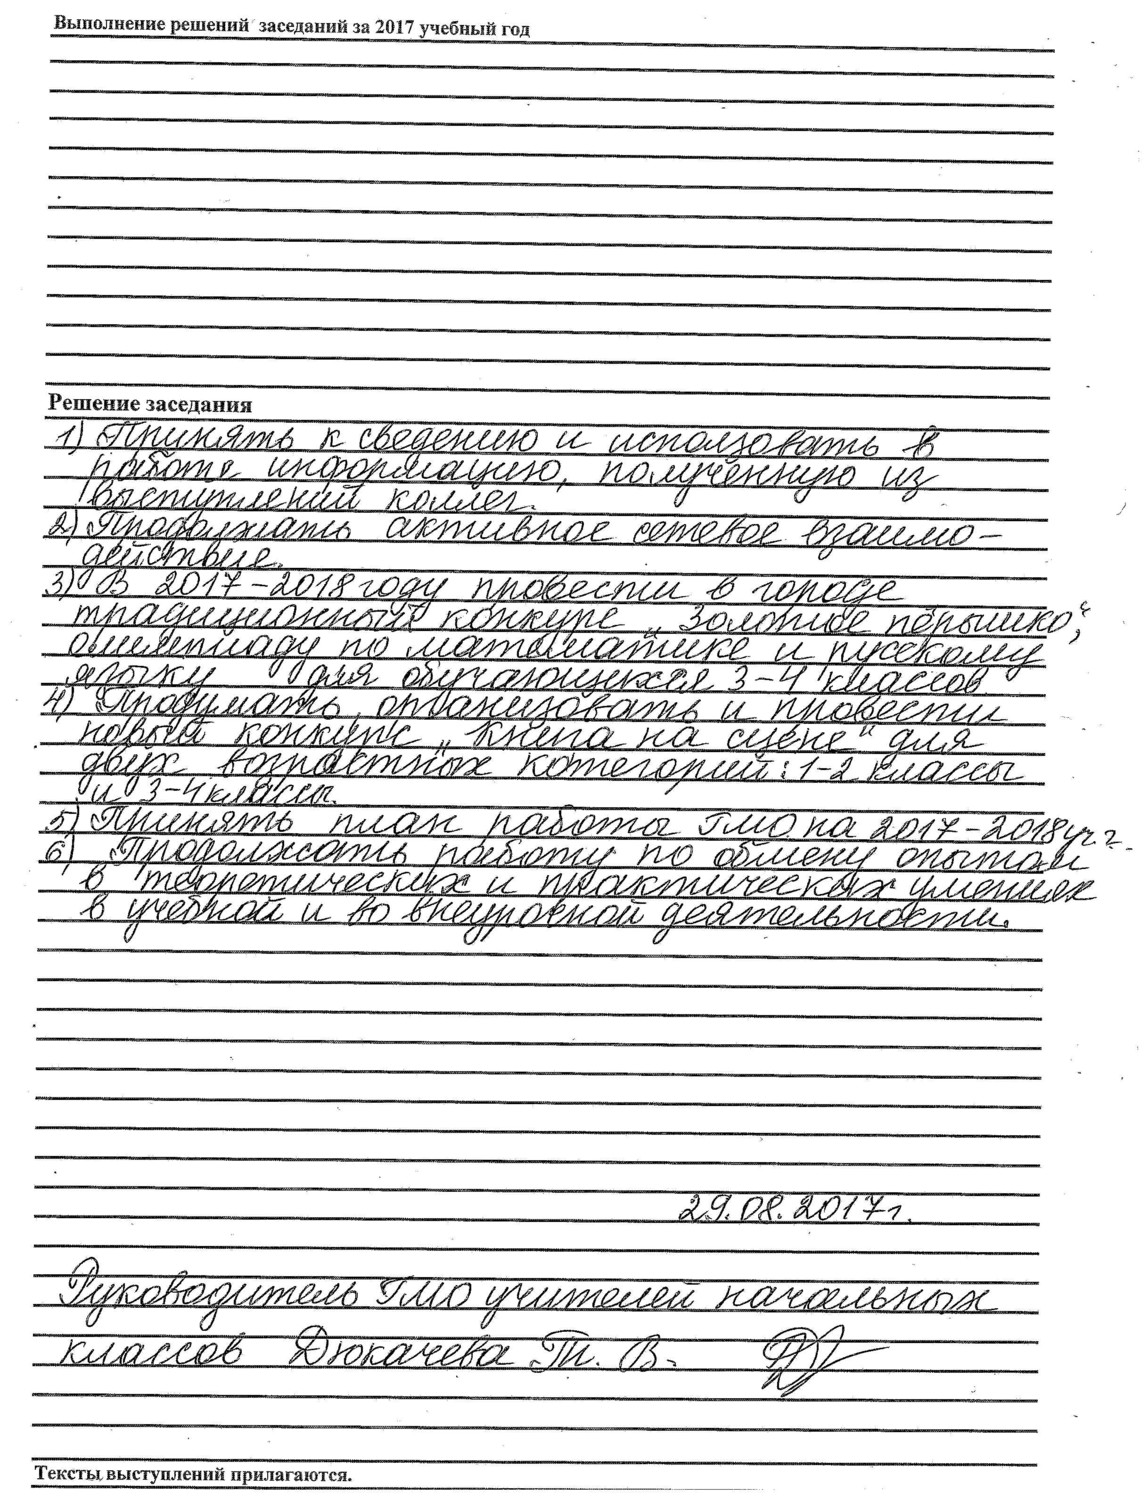 Выполнение решений заседаний за 2017 учебный год
Решение заседания
1) Принять к сведению и использовать в
работе информацию, полученную из
выступлений коллег.
2) Продолжать активное сетевое взаимо-
действие.
3) В 2017-2018 году провести в городе
традиционный конкурс „Золотое пёрышко“,
олимпиаду по математике и русскому
языку для обучающихся 3-4 классов
4) Продумать, организовать и провести
новый конкурс „Книга на сцене“ для
двух возрастных категорий: 1-2 классы
и 3-4 классы.
5) Принять план работы ГМО на 2017-2018 уч. г.
6) Продолжать работу по обмену опытом
в теоретических и практических умениях
в учебной и во внеурочной деятельности.
29.08.2017г.
Руководитель ГМО учителей начальных
классов Дюкачева Т. В.
Тексты выступлений прилагаются.